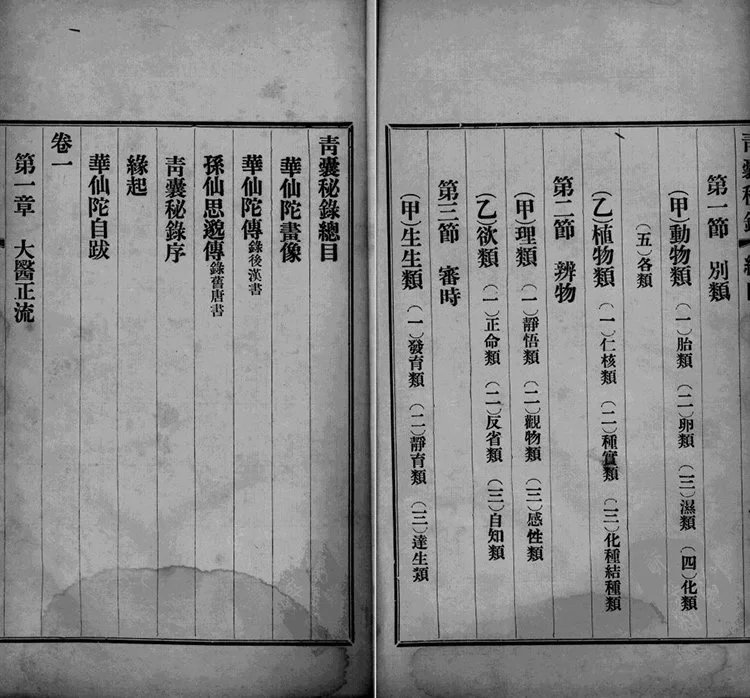 青囊秘錄總目
華仙陀畫像
華仙陀傳 錄後漢書
孫仙思邈傳 錄舊唐書
青囊秘錄序
緣起
華仙陀自跋
卷一
第一章 大醫正流
青囊秘錄 總目
第一節 別類
(甲)動物類 (一)胎類 (二)卵類 (三)濕類 (四)化類
(五)各類
(乙)植物類 (一)仁核類 (二)種實類 (三)化種結種類
第二節 辨物
(甲)理類 (一)靜悟類 (二)觀物類 (三)感性類
(乙)欲類 (一)正命類 (二)反省類 (三)自知類
第三節 審時
(甲)生生類 (一)發育類 (二)靜育類 (三)達生類